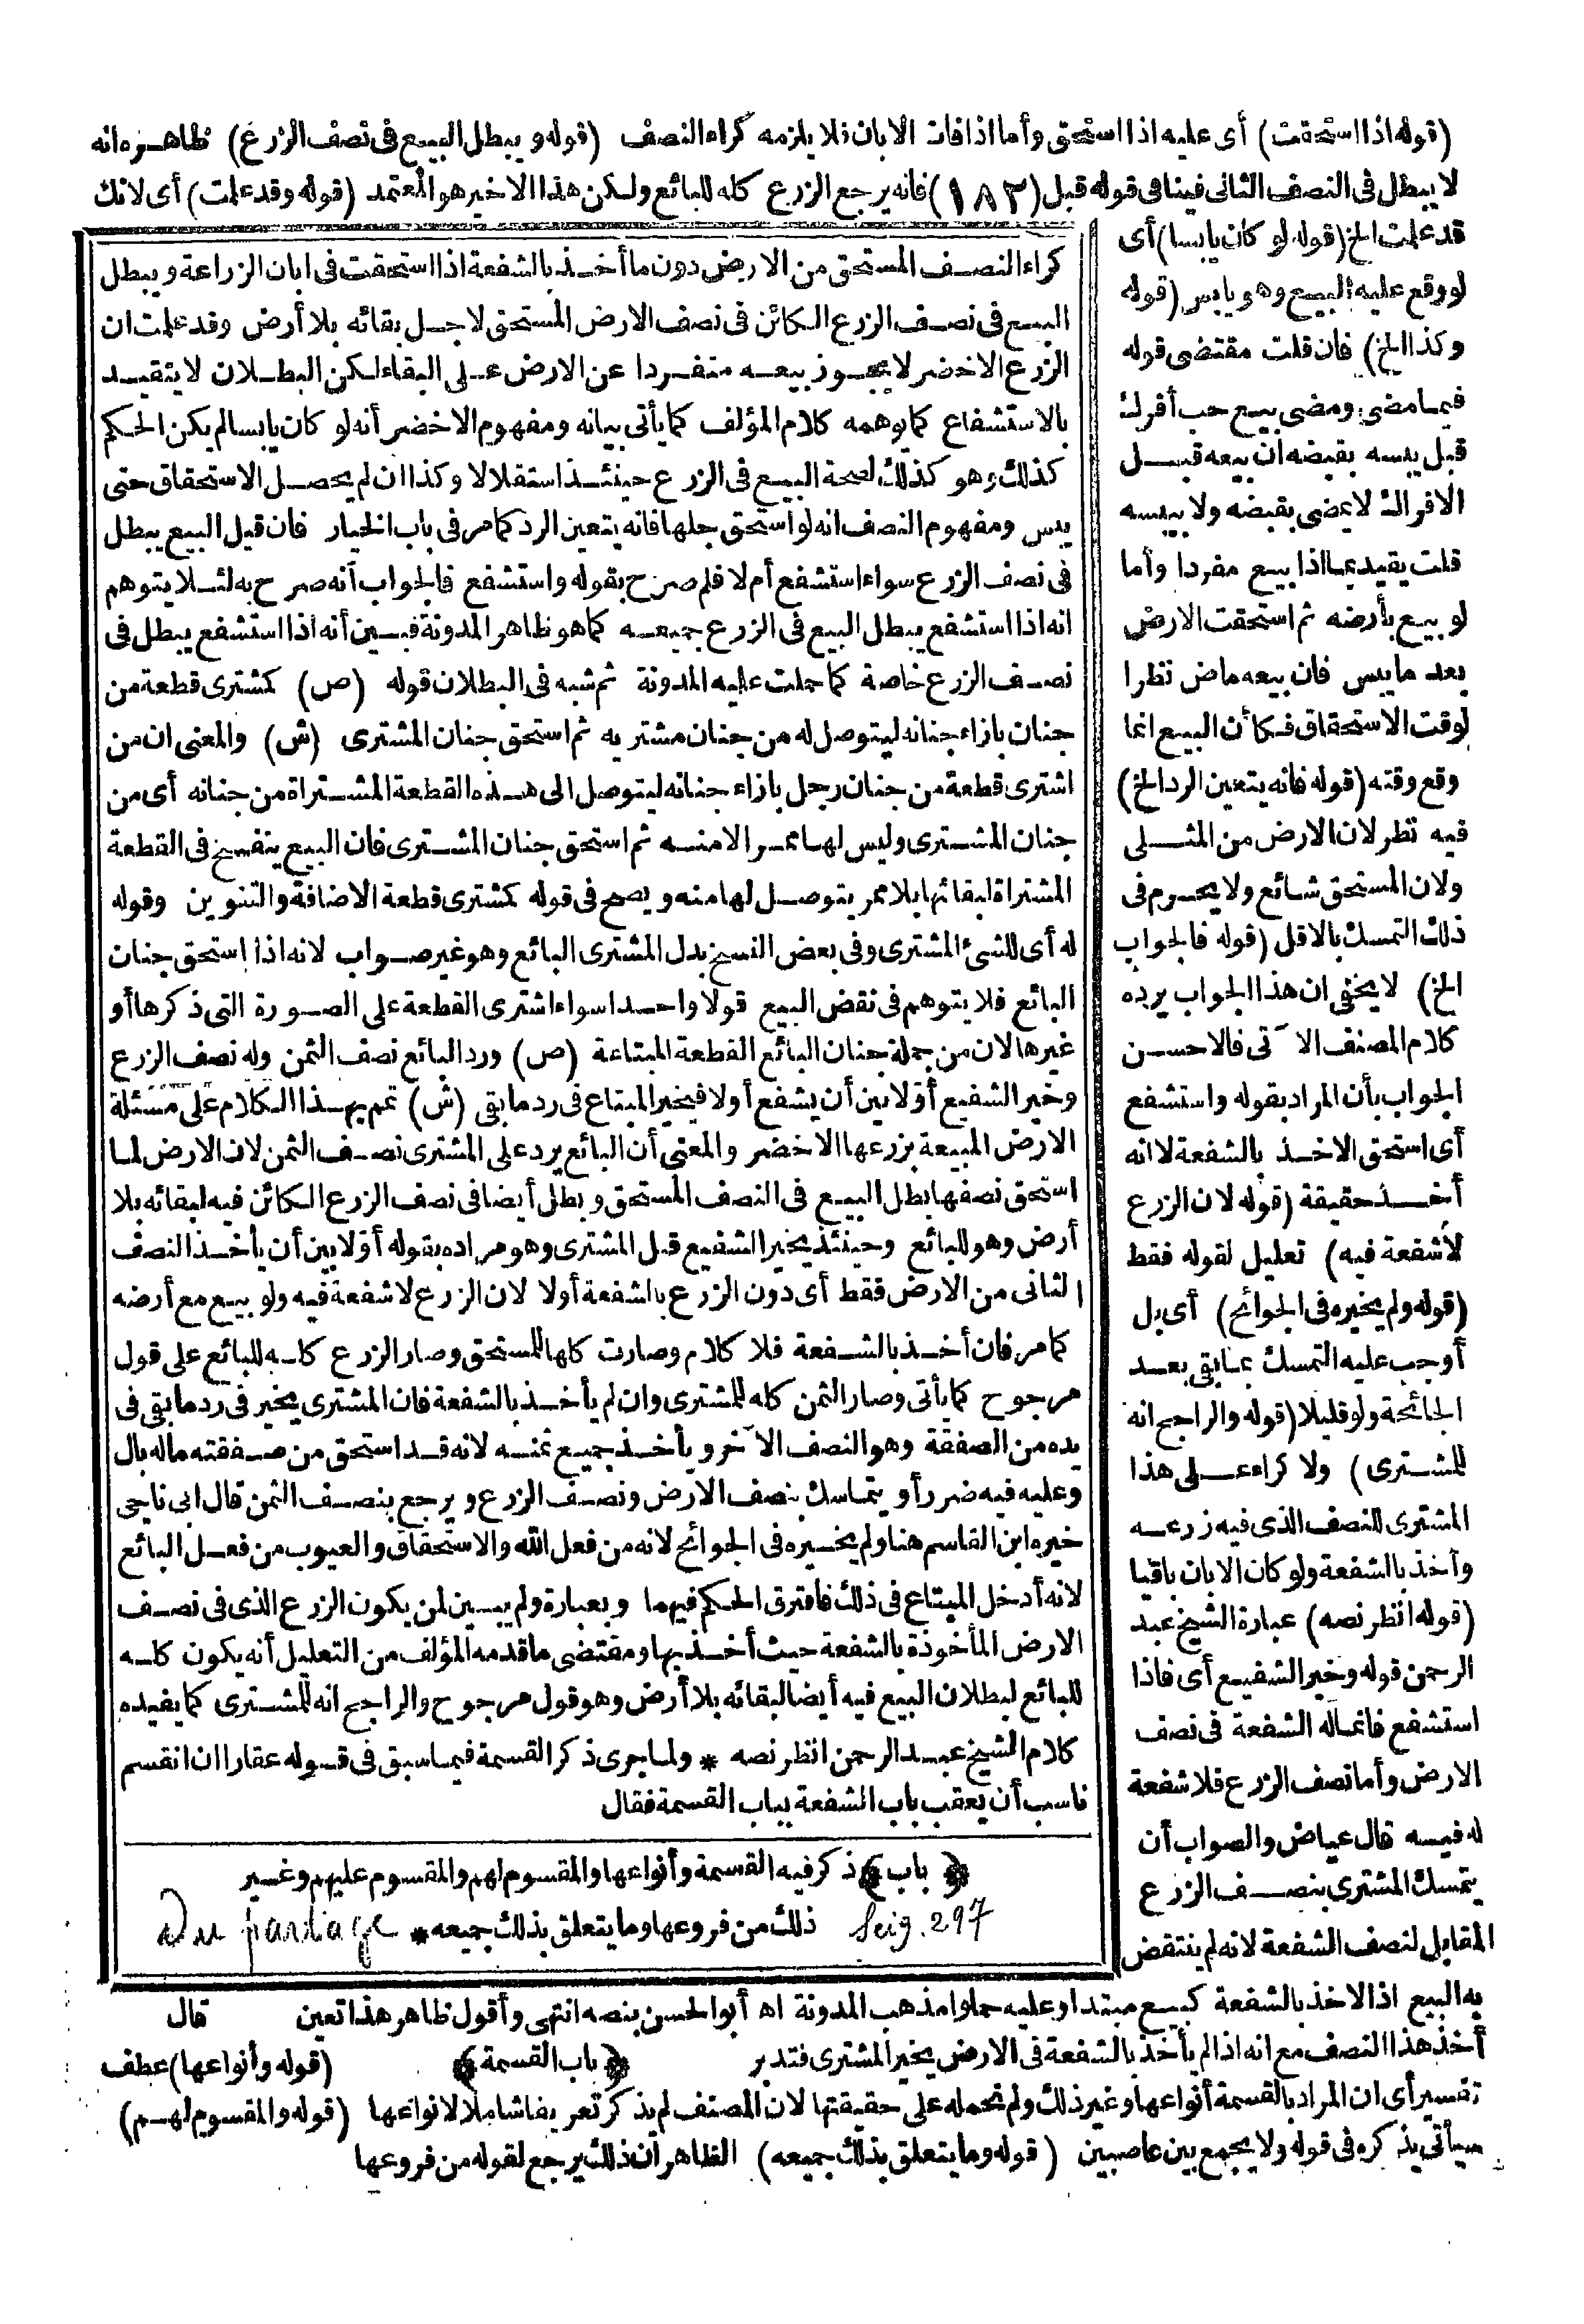 (قوله اذا استحقت) أى عليه اذا استحق وأما اذا فات الابان فلا يلزمه كراء النصف (قوله ويبطل البيع فى نصف الزرع) ظاهره انه
لا يبطل فى النصف الثانى فينافى قوله قبل (١٨٢) فانه يرجع الزرع كله للبائع ولكن هذا الاخير هو المعتمد (قوله وقد علمت) أى لانك
قد علمت الخ (قوله لو كان يابسا) أى
لو وقع عليه البيع وهو يابس (قوله
وكذا الخ) فان قلت مقتضى قوله
فيما مضى ومضى بيع حب أفرك
قبل يبسه بقبضه ان بيعه قبل
الافراك لا يمضى بقبضه ولا بيبسه
قلت يقيد بما اذا بيع مفردا وأما
لو بيع بأرضه ثم استحقت الارض
بعد ما يبس فان بيعه ماض نظرا
لوقت الاستحقاق فكأن البيع انما
وقع وقته (قوله فانه يتعين الرد الخ)
فيه نظر لان الارض من المثلى
ولان المستحق شائع ولا يحرم فى
ذلك التمسك بالاقل (قوله فالجواب
الخ) لا يخفى ان هذا الجواب يرده
كلام المصنف الآتى فالاحسن
الجواب بأن المراد بقوله واستشفع
أى استحق الاخذ بالشفعة لا انه
أخذ حقيقة (قوله لان الزرع
لا شفعة فيه) تعليل لقوله فقط
(قوله ولم يخيره فى الجوائح) أى بل
أوجب عليه التمسك بما بقى بعد
الجائحة ولو قليلا (قوله والراجح انه
للمشترى) ولا كراء على هذا
المشترى للنصف الذى فيه زرعه
وأخذ بالشفعة ولو كان الابان باقيا
(قوله انظر نصه) عبارة الشيخ عبد
الرحمن قوله وخير الشفيع أى فاذا
استشفع فانما له الشفعة فى نصف
الارض وأما نصف الزرع فلا شفعة
له فيه قال عياض والصواب أن
يتمسك المشترى بنصف الزرع
المقابل لنصف الشفعة لانه لم ينتقض
كراء النصف المستحق من الارض دون ما أخذ بالشفعة اذا استحقت فى ابان الزراعة ويبطل
البيع فى نصف الزرع الكائن فى نصف الارض المستحق لاجل بقائه بلا أرض وقد علمت ان
الزرع الاخضر لا يجوز بيعه منفردا عن الارض على البقاء لكن البطلان لا يتقيد
بالاستشفاع كما يوهمه كلام المؤلف كما يأتى بيانه ومفهوم الاخضر أنه لو كان يابسا لم يكن الحكم
كذلك وهو كذلك لصحة البيع فى الزرع حينئذ استقلالا وكذا ان لم يحصل الاستحقاق حتى
يبس ومفهوم النصف انه لو استحق جلها فانه يتعين الرد كما مر فى باب الخيار فان قيل البيع يبطل
فى نصف الزرع سواء استشفع أم لا فلم صرح بقوله واستشفع فالجواب أنه صرح به لئلا يتوهم
انه اذا استشفع يبطل البيع فى الزرع جميعه كما هو ظاهر المدونة فبين أنه اذا استشفع يبطل فى
نصف الزرع خاصة كما حملت عليه المدونة ثم شبه فى البطلان قوله (ص) كمشترى قطعة من
جنان بازاء جنانه ليتوصل له من جنان مشتريه ثم استحق جنان المشترى (ش) والمعنى ان من
اشترى قطعة من جنان رجل بازاء جنانه ليتوصل الى هذه القطعة المشتراة من جنانه أى من
جنان المشترى وليس لها ممر الا منه ثم استحق جنان المشترى فان البيع ينفسخ فى القطعة
المشتراة لبقائها بلا ممر يتوصل لها منه ويصح فى قوله كمشترى قطعة الاضافة والتنوين وقوله
له أى للشئ المشترى وفى بعض النسخ بدل المشترى البائع وهو غير صواب لانه اذا استحق جنان
البائع فلا يتوهم فى نقض البيع قولا واحدا سواء اشترى القطعة على الصورة التى ذكرها أو
غيرها لان من جملة جنان البائع القطعة المبتاعة (ص) ورد البائع نصف الثمن وله نصف الزرع
وخير الشفيع أولا بين أن يشفع أولا فيخير المبتاع فى رد ما بقى (ش) تمم بهذا الكلام على مسئلة
الارض المبيعة بزرعها الاخضر والمعنى أن البائع يرد على المشترى نصف الثمن لان الارض لما
استحق نصفها بطل البيع فى النصف المستحق وبطل أيضا فى نصف الزرع الكائن فيه لبقائه بلا
أرض وهو للبائع وحينئذ يخير الشفيع قبل المشترى وهو مراده بقوله أولا بين أن يأخذ النصف
الثانى من الارض فقط أى دون الزرع بالشفعة أولا لان الزرع لا شفعة فيه ولو بيع مع أرضه
كما مر فان أخذ بالشفعة فلا كلام وصارت كلها للمستحق وصار الزرع كله للبائع على قول
مرجوح كما يأتى وصار الثمن كله للمشترى وان لم يأخذ بالشفعة فان المشترى يخير فى رد ما بقى فى
يده من الصفقة وهو النصف الآخر ويأخذ جميع ثمنه لانه قد استحق من صفقته ماله بال
وعليه فيه ضرر أو يتماسك بنصف الارض ونصف الزرع ويرجع بنصف الثمن قال ابن ناجى
خيره ابن القاسم هنا ولم يخيره فى الجوائح لانه من فعل الله والاستحقاق والعيوب من فعل البائع
لانه أدخل المبتاع فى ذلك فافترق الحكم فيهما وبعبارة ولم يبين لمن يكون الزرع الذى فى نصف
الارض المأخوذة بالشفعة حيث أخذ بها ومقتضى ما قدمه المؤلف من التعليل أنه يكون كله
للبائع لبطلان البيع فيه أيضا لبقائه بلا أرض وهو قول مرجوح والراجح انه للمشترى كما يفيده
كلام الشيخ عبد الرحمن انظر نصه * ولما جرى ذكر القسمة فيما سبق فى قوله عقارا ان انقسم
ناسب أن يعقب باب الشفعة بباب القسمة فقال
﴿باب﴾ ذكر فيه القسمة وأنواعها والمقسوم لهم والمقسوم عليهم وغير
ذلك من فروعها وما يتعلق بذلك جميعه *
Seig. 297
Du partage
به البيع اذ الاخذ بالشفعة كبيع مبتدا وعليه حملوا مذهب المدونة اه أبو الحسن بنصه انتهى وأقول ظاهر هذا تعين قال
أخذ هذا النصف مع انه اذا لم يأخذ بالشفعة فى الارض يخير المشترى فتدبر ﴿باب القسمة﴾ (قوله وأنواعها) عطف
تفسير أى ان المراد بالقسمة أنواعها وغير ذلك ولم تحمله على حقيقتها لان المصنف لم يذكر تعريفا شاملا لانواعها (قوله والمقسوم لهم)
سيأتى يذكره فى قوله ولا يجمع بين عاصبين (قوله وما يتعلق بذلك جميعه) الظاهر أن ذلك يرجع لقوله من فروعها